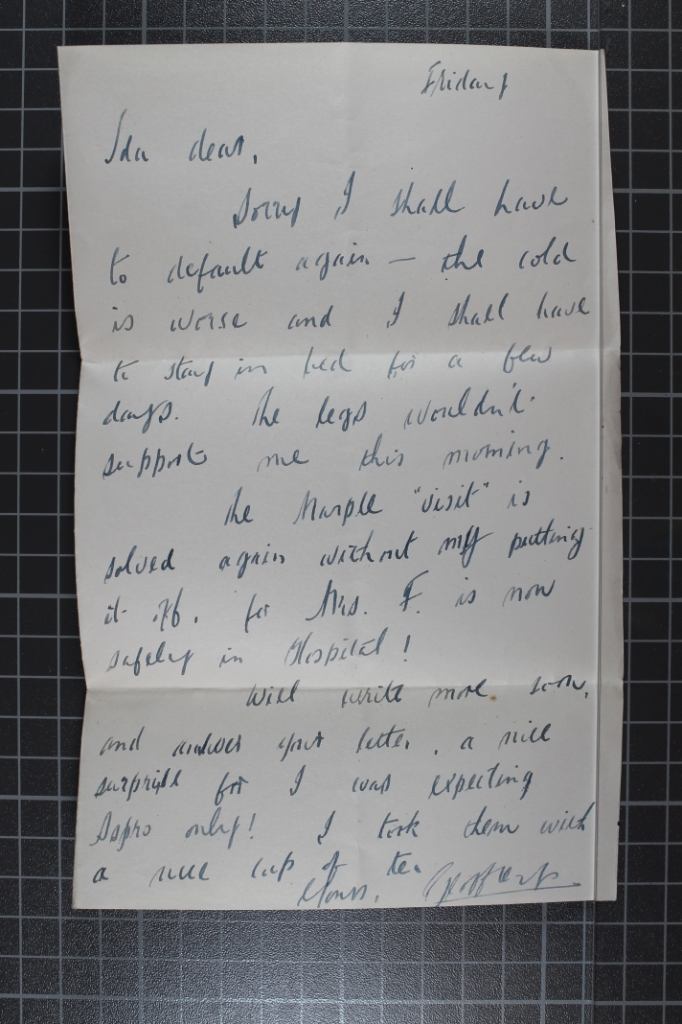 Friday
Ida dear,
Sorry I shall have
to default again — the cold
is worse and I shall have
to stay in bed for a few
days. The legs wouldn't
support me this morning.
The Marple "visit" is
solved again without my putting
it off, for Mrs. F. is now
safely in Hospital!
Will write more soon,
and answer your letter, a nice
surprise for I was expecting
Aspro only! I took them with
a nice cup of tea
Yours, Geoffrey